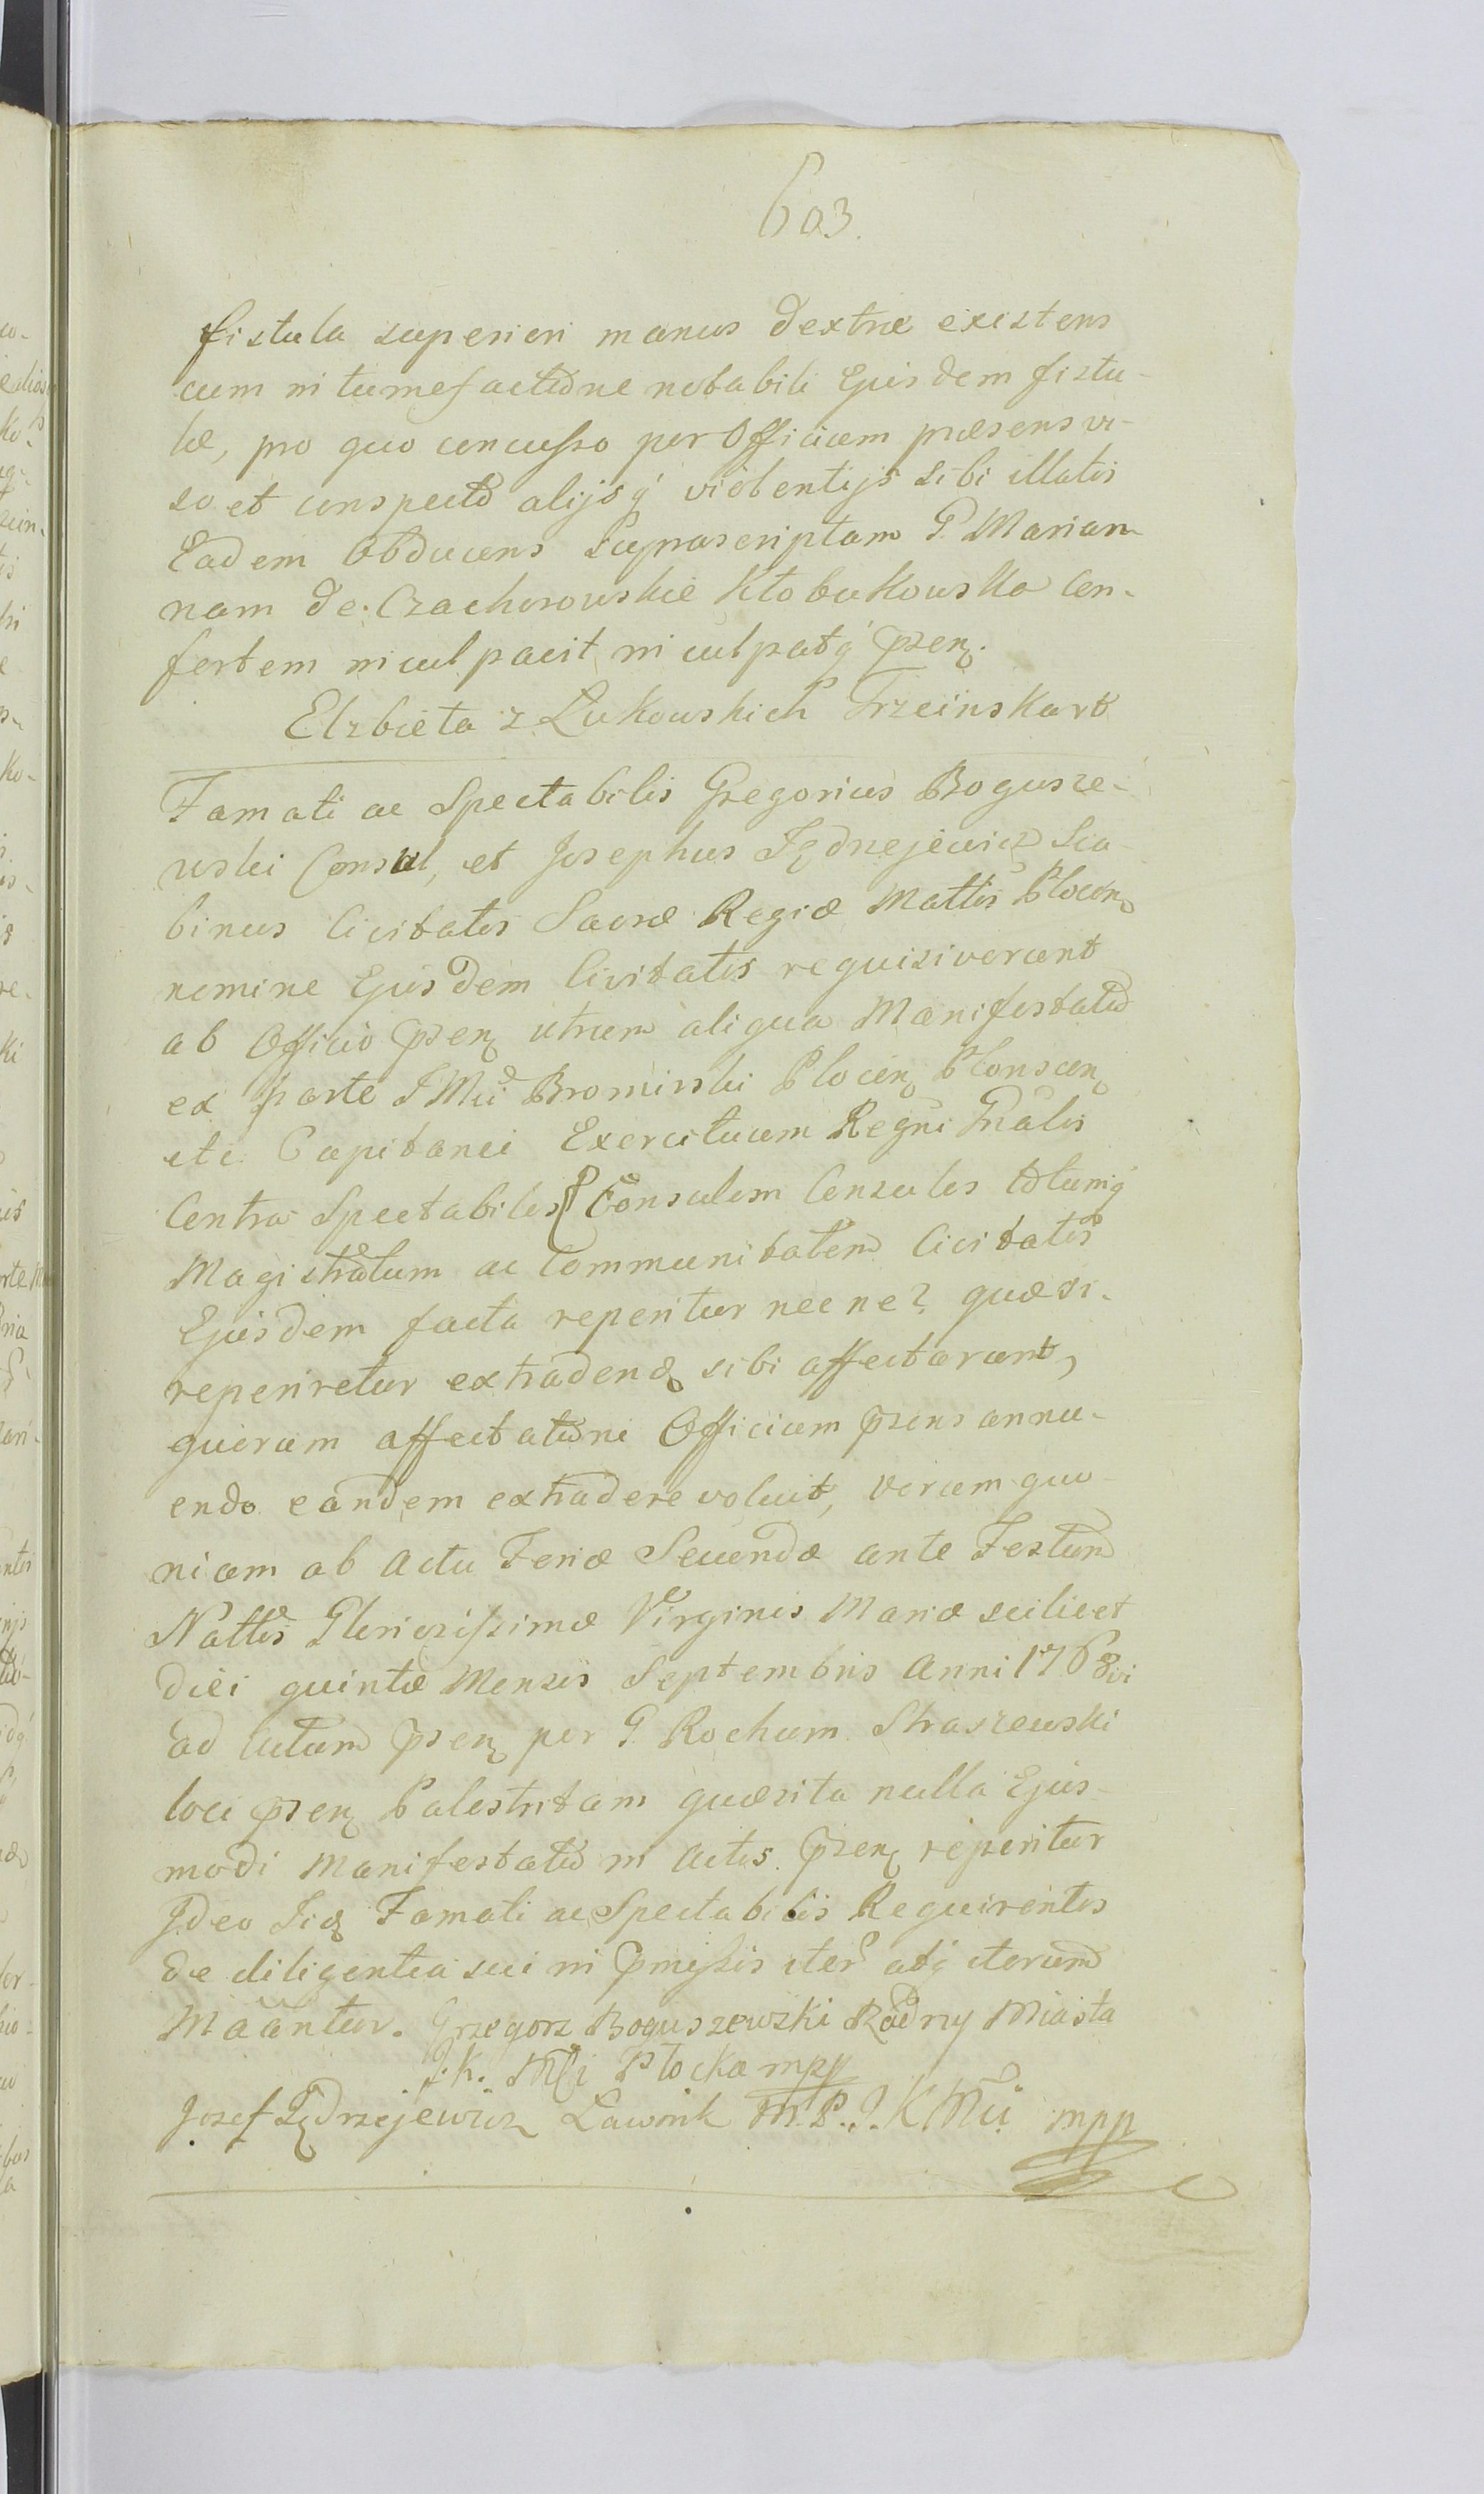 603.
fistula superiori manus dextræ existens
cum in tumefactione notabili Ejusdem fistu-
læ, pro quo concusso per Officium præsens vi-
so et conspecto alijsq́ violentijs sibi illatis
Eadem Obducens Suprascriptam G. Marian-
nam de Czachorowskie Kłobukowska Con-
fertem inculpavit, inculpatq́ p̃sen.
Elzbieta z Łukowskich Trzcinska
Famati ac Spectabilis Gregorius Bogusze-
wski Consul, et Josephus Jędrzejewicz Sca-
binus Civitatis Sacræ Regiæ Mattis Plocen
nomine Ejusdem Civitatis requisiverunt
ab Officio p̃sen utrum aliqua Manifestatio
ex parte J Mci Bromirski Plocen Plonscen
etc Capitanei Exercituum Regni Gnalis
Contra Spectabiles Consulem Consules totumq́
Magistratum ac Communitatem Civitatis
Ejusdem facta reperitur nec ne? quæ si
reperiretur extradend sibi affectarunt,
quorum affectationi Officium p̃sens annu-
endo eandem extradere voluit, verum quo-
niam ab Actu Feriæ Secundæ ante Festum
Nattis Gloriosissimæ Virginis Mariæ scilicet
diei quintæ Mensis Septembris Anni 1768vi
ad Actum p̃sen per G. Rochum Straszewski
loci p̃sen Palestritam quæsita nulla Ejus-
modi Manifestatio in Actis p̃sen reperitur
Ideo Iid Famati ac Spectabilis Requirentes
de diligentia sui in p̃missis iter atq́ iterum
Maãntur. Grzegorz Boguszewski Radny Miasta
J. K. Mci Płocka mpp
Jozef Jędrzejewicz Ławnik M. P. J. K Mci mpp